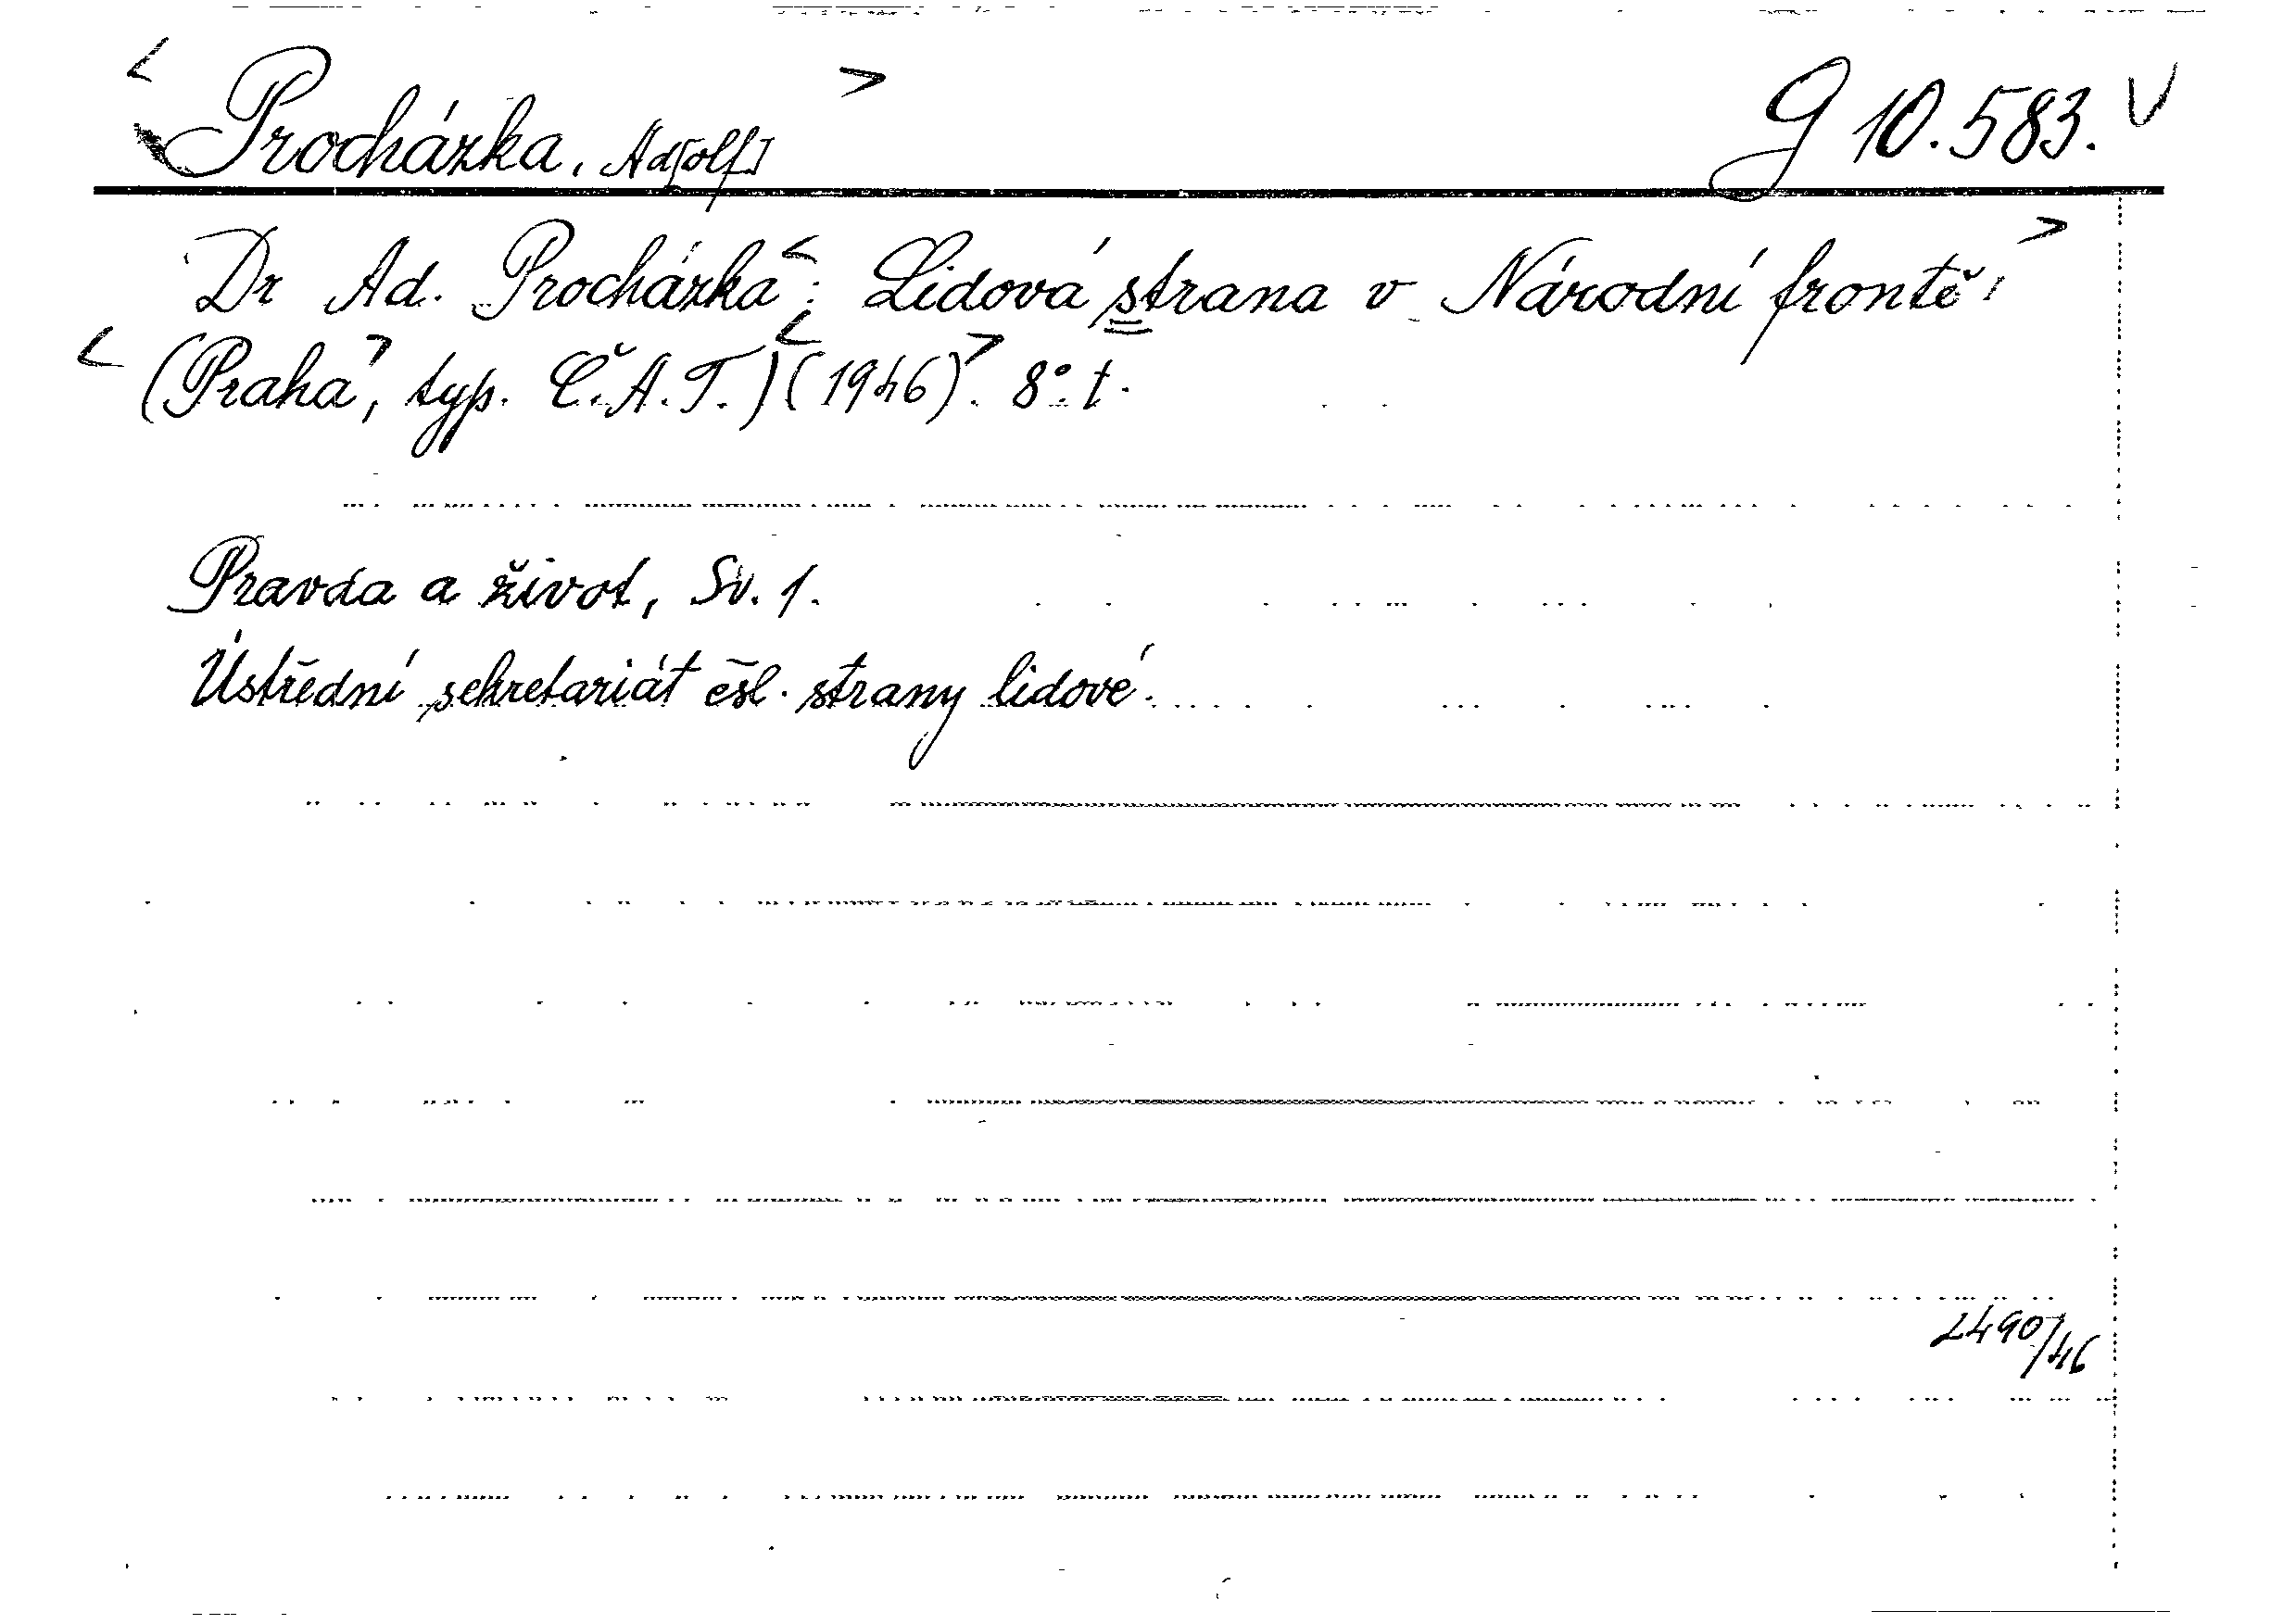 <Procházka, Ad[olf]> G 10.583. V
Dr Ad. Procházka<: Lidová strana v Národní frontě.>
<(Praha>, typ. Č.A.T.)<(1946)>. 8°. t.
Pravda a život, Sv. 1.
Ústřední sekretariát čsl. strany lidové.
2490/46